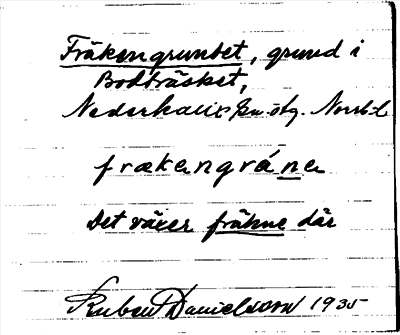 Fräkengrundet, grund i
Bodträsket,
Nederkalix sn. ög. Norrb.l.
frækengrá n e
Det växer fräkne där
Ruben Danielsson 1935